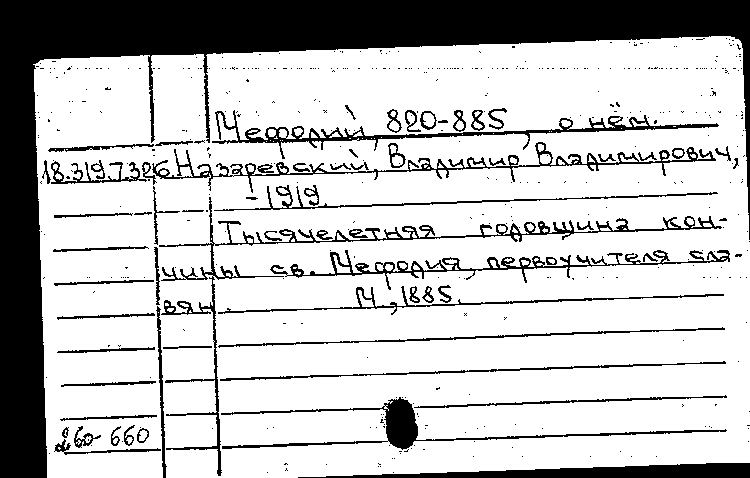 Мефодий, 820-885, о нём.
18.319.7.326 Назаревский, Владимир Владимирович,
-1919.
Тысячелетняя годовщина кон-
чины св. Мефодия, первоучителя сла-
вян. М., 1885.
260-660